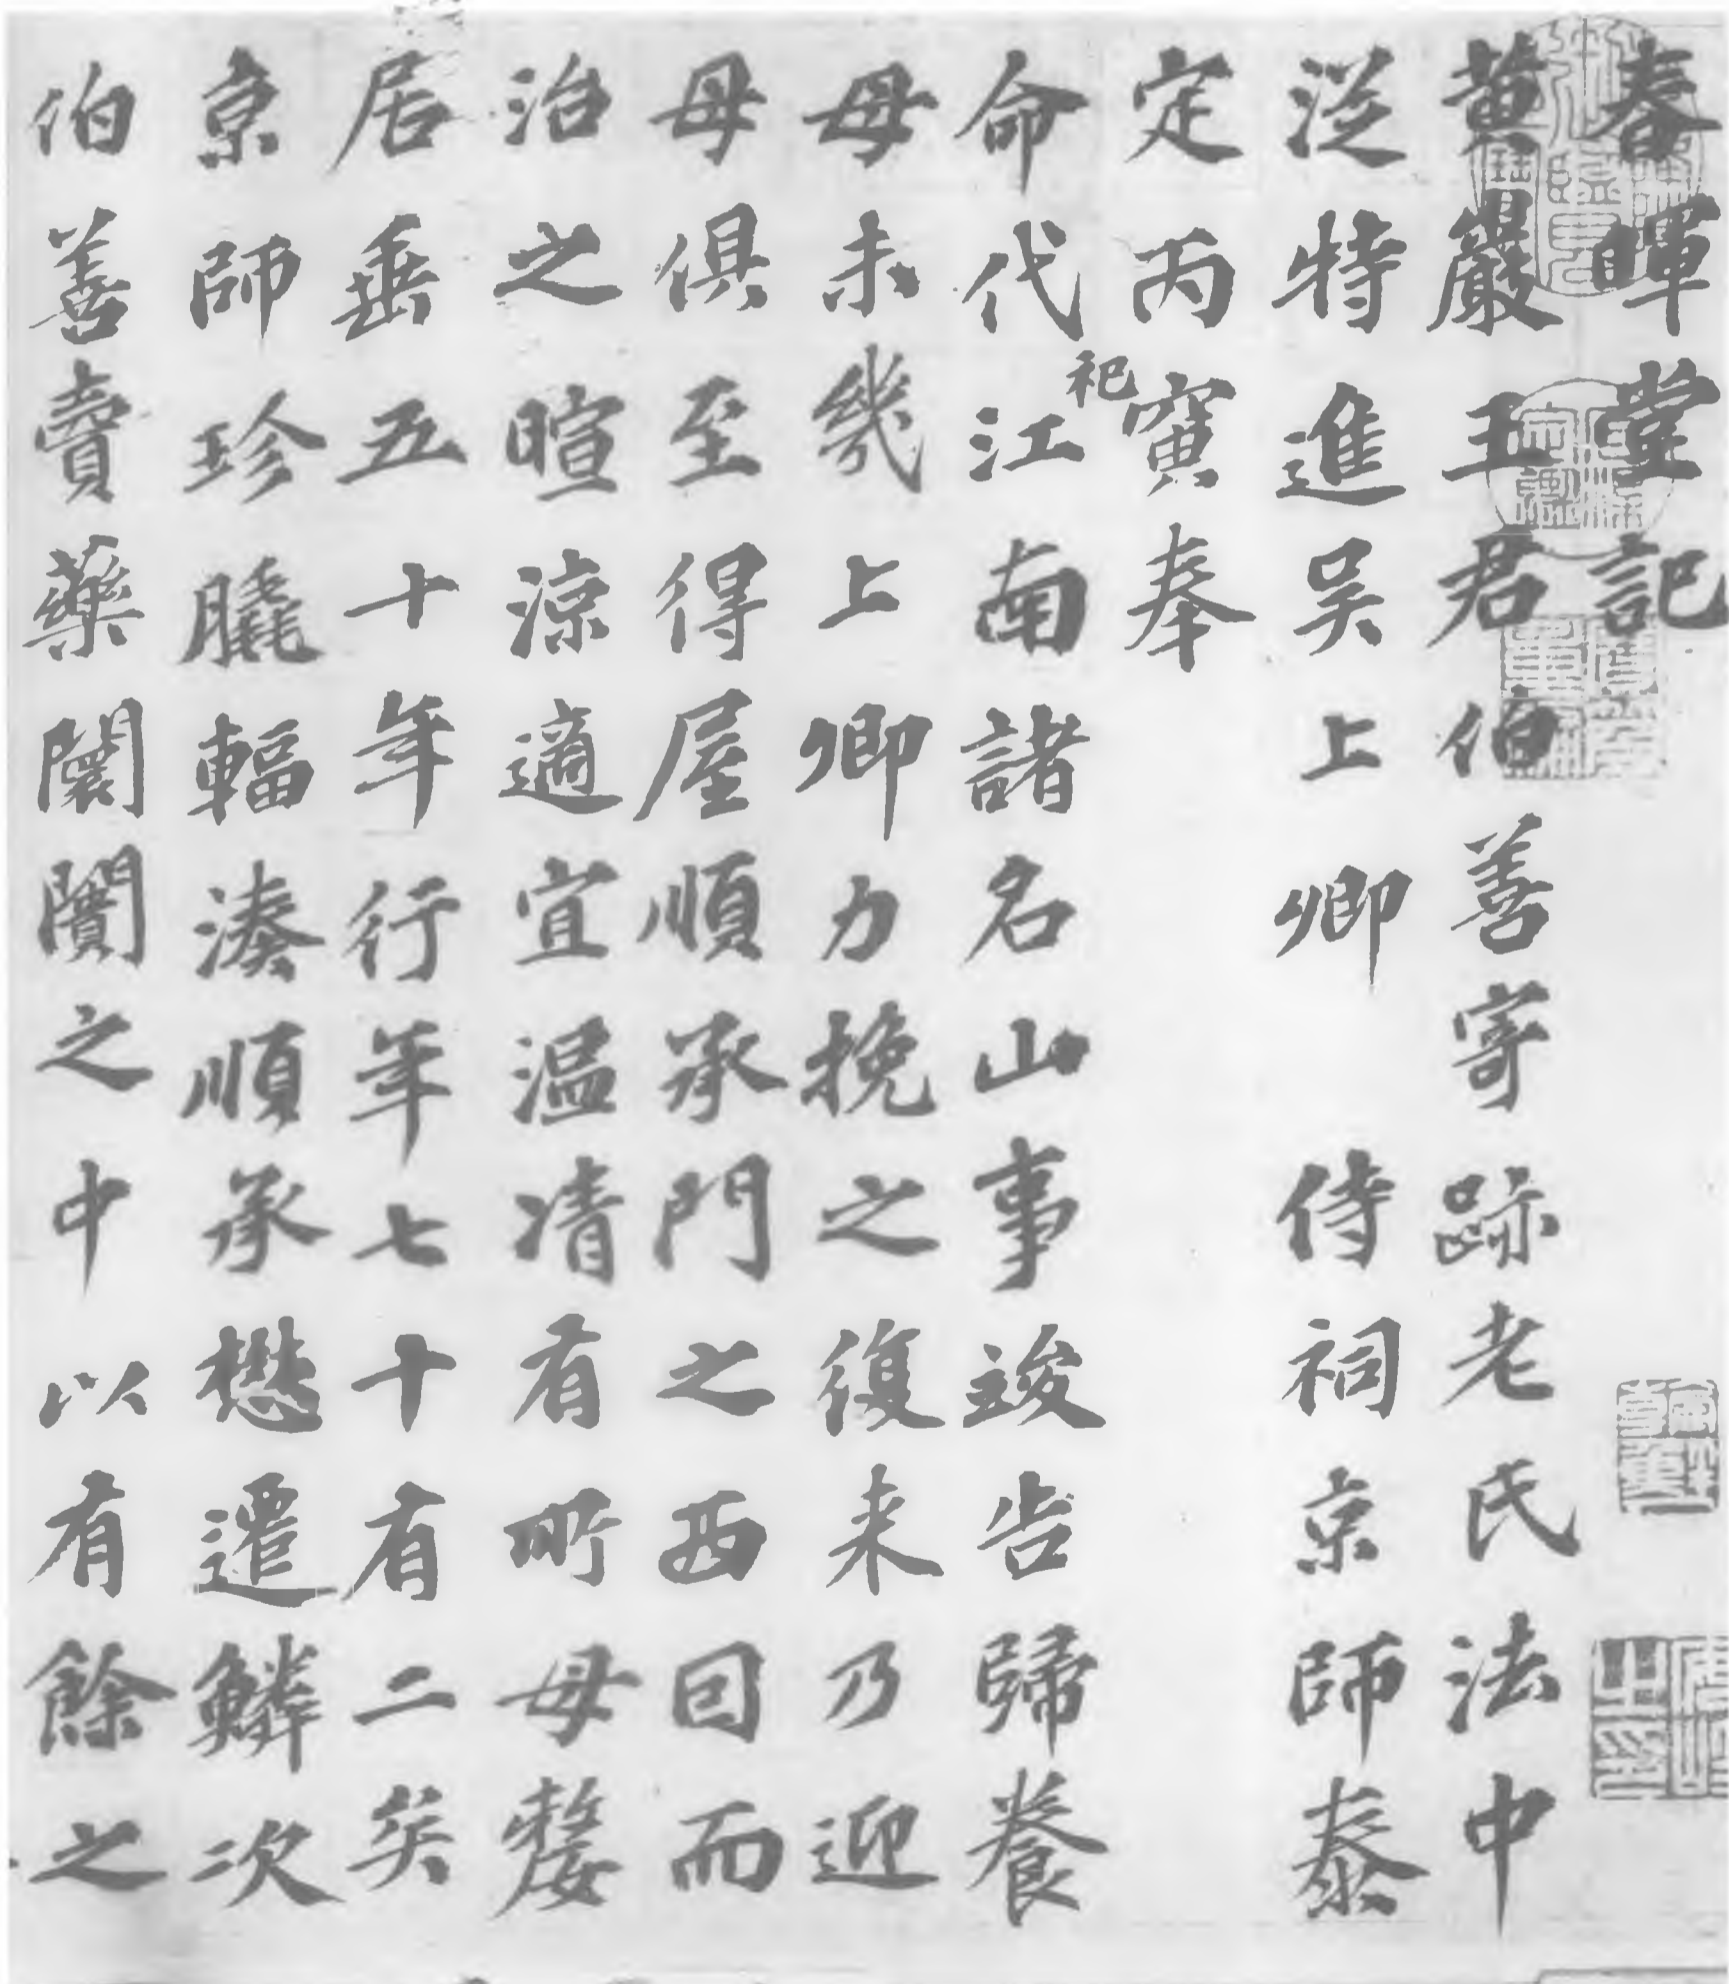 春暉堂記
黄巖王君伯善寄跡老氏法中
從特進吴上卿侍祠京師泰
定丙寅奉
祀
命代江南諸名山事竣告歸養
母未幾上卿力挽之復来乃迎
母俱至得屋順承門之西回而
治之暄涼適宜温凊有所母嫠
居垂五十年行年七十有二矣
京師珍膬輻湊順承懋遷鱗次
伯善賣藥闤闠之中以有餘之